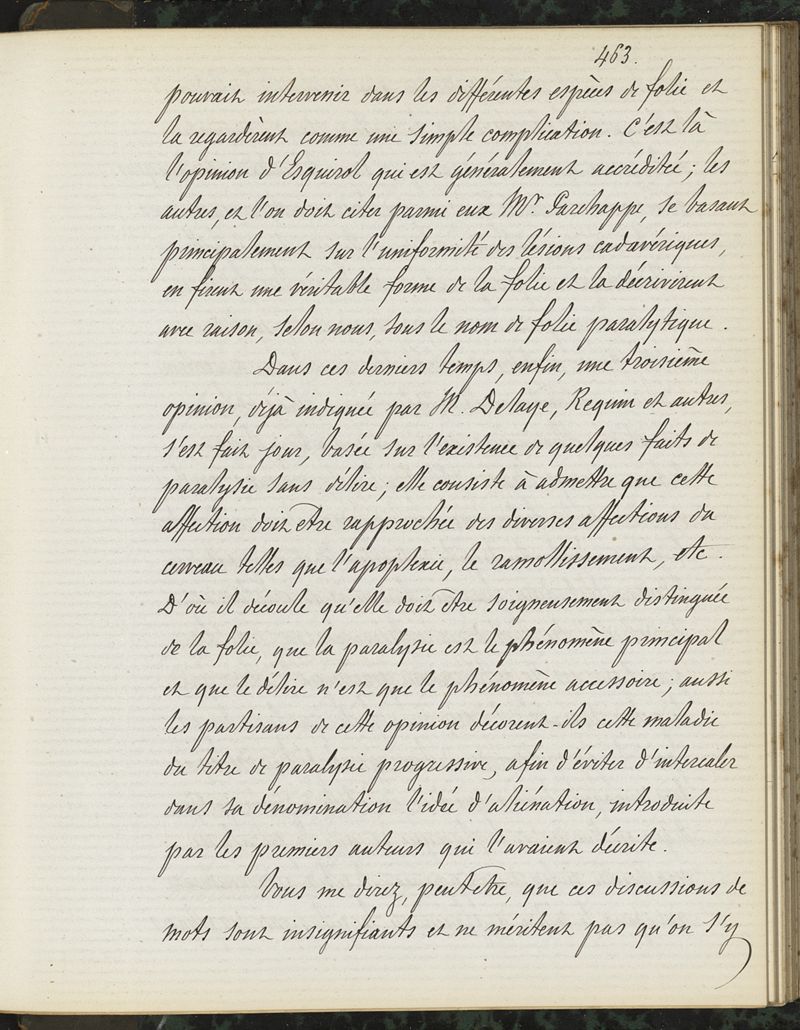 463.
pouvait intervenir dans les différentes espèces de folie et
la regardèrent comme une simple complication. C'est là
l'opinion d'Esquirol qui est généralement accréditée ; les
autres, et l'on doit citer parmi eux Mr. Parchappe, se basant
principalement sur l'uniformité des lésions cadavériques,
en firent une véritable forme de la folie et la décrivirent
avec raison, selon nous, sous le nom de folie paralytique.
Dans ces derniers temps, enfin, une troisième
opinion, déjà indiquée par M. Delaye, Requin et autres,
s'est fait jour, basée sur l'existence de quelques faits de
paralysie sans délire ; elle consiste à admettre que cette
affection doit être rapprochée des diverses affections du
cerveau telles que l'apoplexie, le ramollissement, etc.
D'où il découle qu'elle doit être soigneusement distinguée
de la folie, que la paralysie est le phénomène principal
et que le délire n'est que le phénomène accessoire ; aussi
les partisans de cette opinion décorent-ils cette maladie
du titre de paralysie progressive, afin d'éviter d'intercaler
dans sa dénomination l'idée d'aliénation, introduite
par les premiers auteurs qui l'avaient décrite.
Vous me direz, peut être, que ces discussions de
mots sont insignifiants et ne méritent pas qu'on s'y